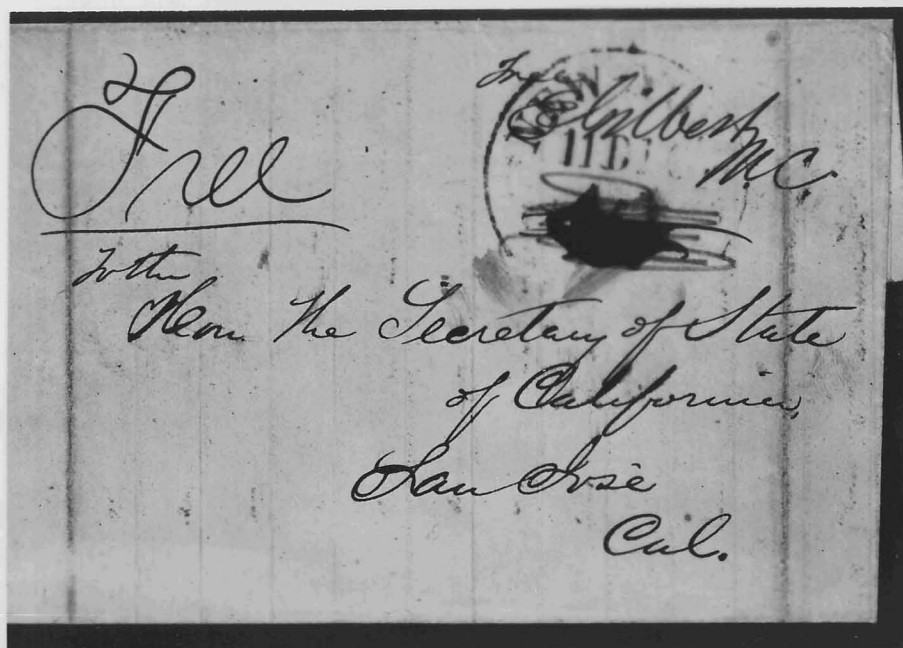 Free
Gilbert
M.C.
NEW
To the
Hon. The Secretary of State
of California,
San José
Cal.